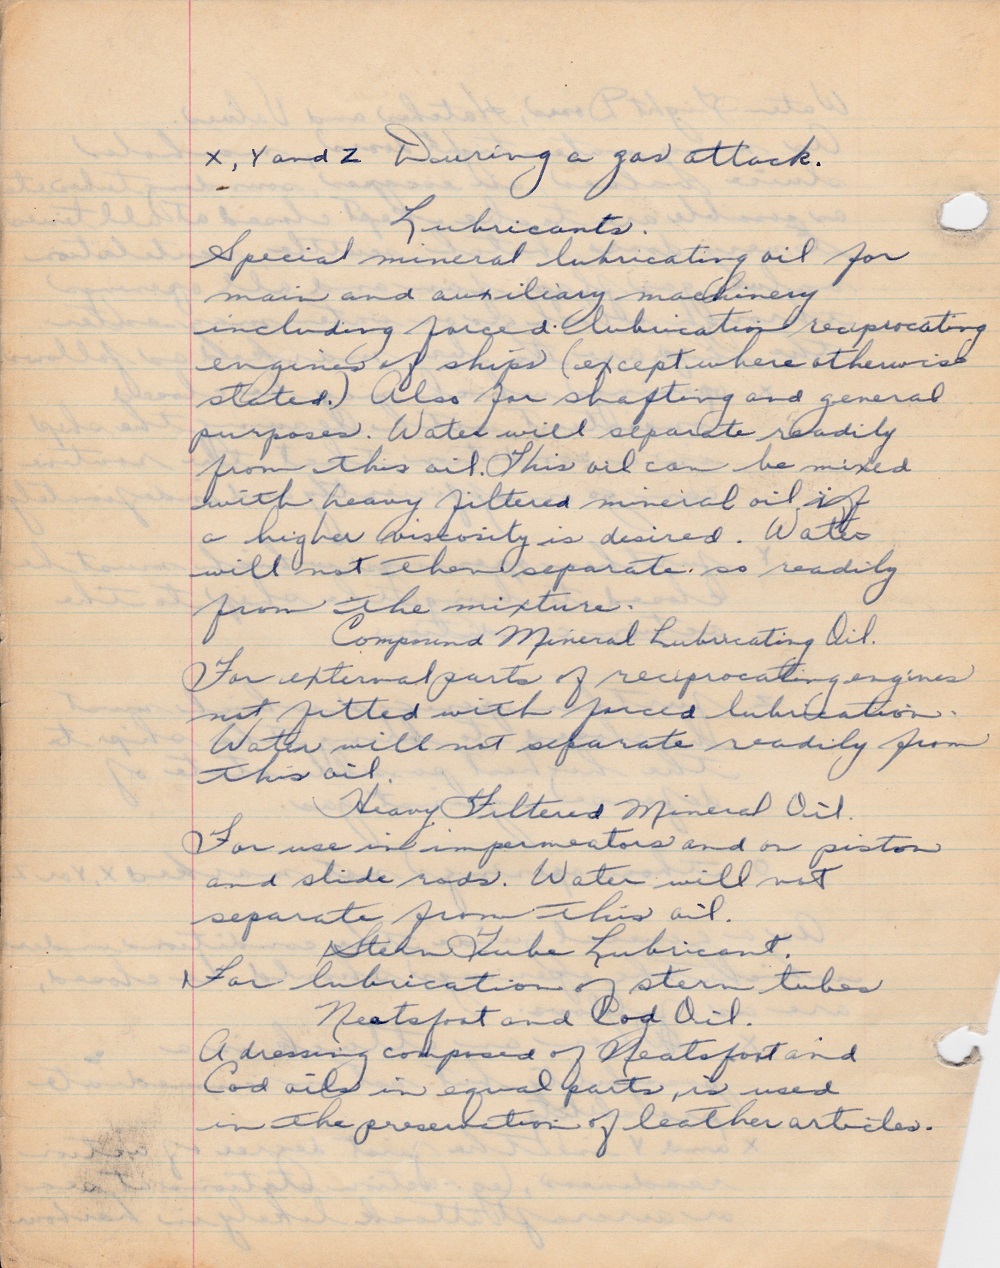 X, Y and Z During a gas attack.
Lubricants.
Special mineral lubricating oil for
main and auxiliary machinery
including forced lubrication reciprocating
engines of ships (except where otherwise
stated.) Also for shafting and general
purposes. Water will separate readily
from this oil. This oil can be mixed
with heavy filtered mineral oil if
a higher viscosity is desired. Water
will not then separate so readily
from the mixture.
Compound Mineral Lubricating Oil.
For external parts of reciprocating engines
not fitted with forced lubrication.
Water will not separate readily from
this oil.
Heavy Filtered Mineral Oil.
For use in impermeators and on piston
and slide rods. Water will not
separate from this oil.
Stern Tube Lubricant.
For lubrication of stern tubes
Neatsfoot and Cod Oil.
A dressing composed of Neatsfoot and
Cod oils in equal parts, is used
in the preservation of leather articles.